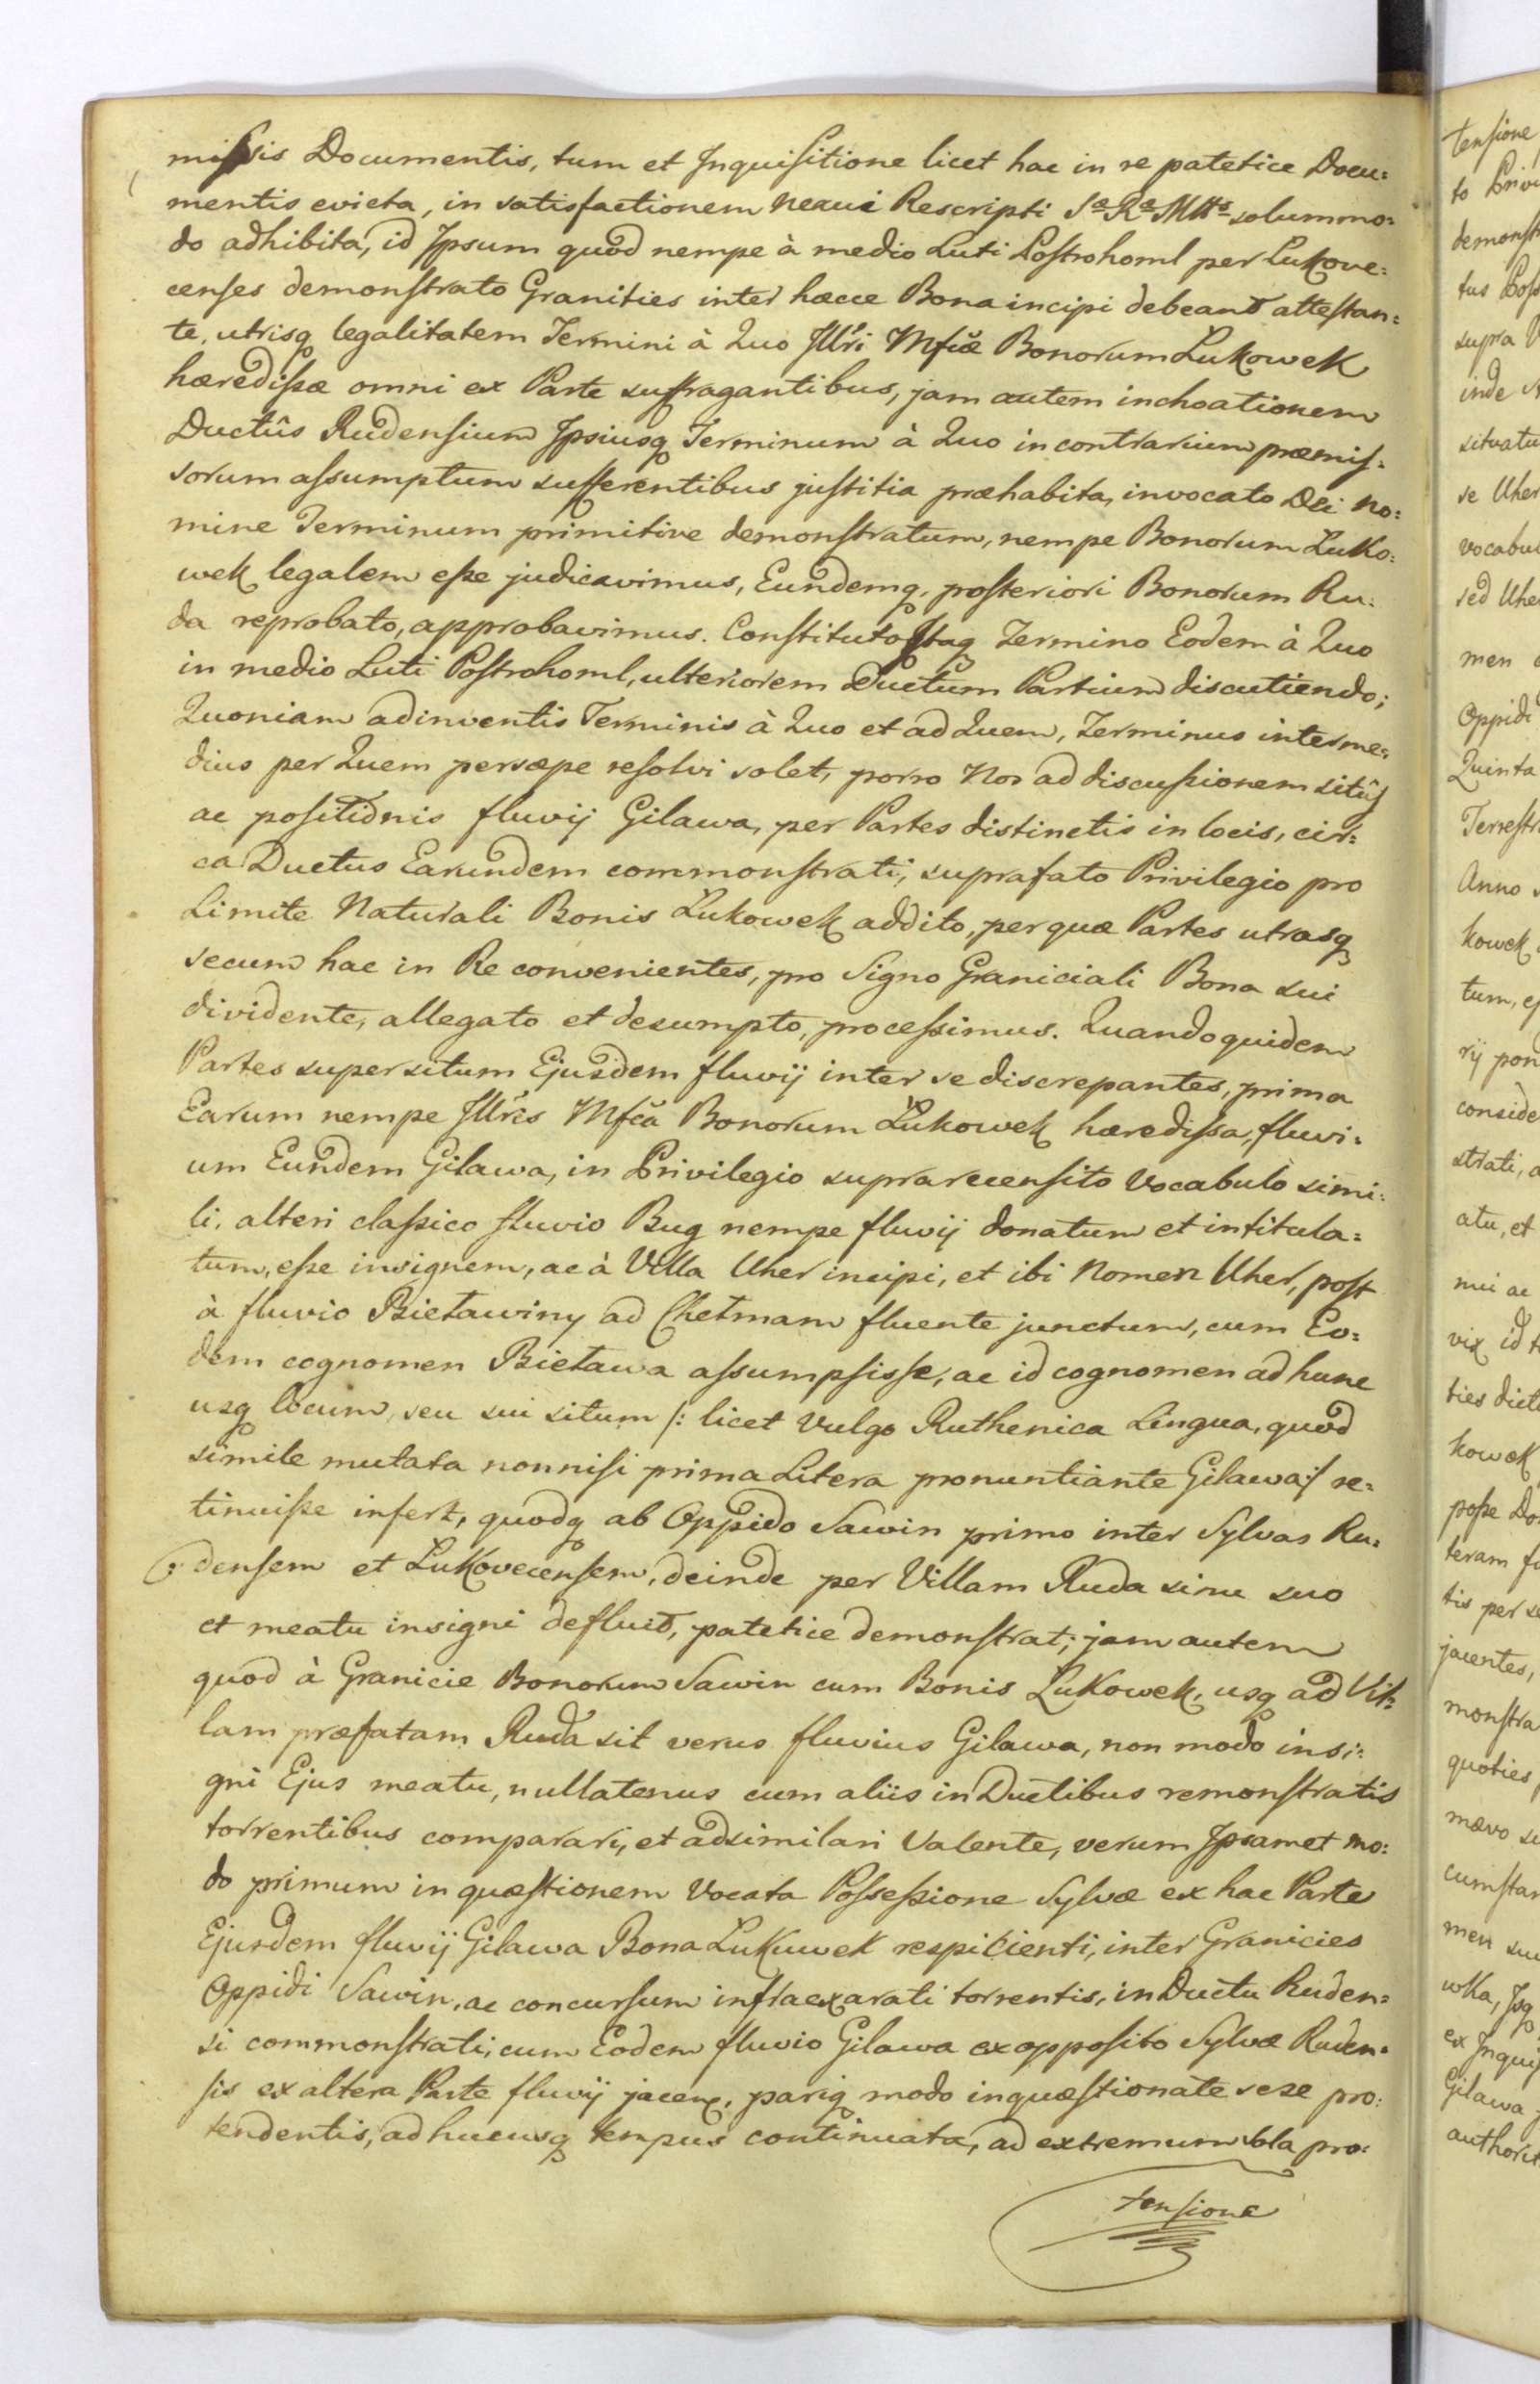 missis Documentis, tum et Inquisitione licet hac in re patetice Docu=
mentis evicta, in satisfactionem nexui Rescripti Sæ Ræ Mttis solummo=
do adhibita, id Ipsum quod nempe à medio Luti Postrohoml per Lukove=
censes demonstrato Granities inter hæcce Bona incipi debeant attestan=
te, utrisq legalitatem Termini à Quo Illri Mficæ Bonorum Lukowek
hæredissæ omni ex Parte suffragantibus, jam autem inchoationem
Ductûs Rudensium Ipsiusq Terminum à Quo in contrarium præmis=
sorum assumptum sufferentibus justitia præhabita, invocato Dei no=
mine Terminum primitive demonstratum, nempe Bonorum Luko=
wek legalem esse judicavimus, Eundemq, posteriori Bonorum Ru=
da reprobato, approbavimus. Constituto Itaq Termino Eodem à Quo
in medio Luti Postrohoml, ulteriorem Ductum Partium discutiendo;
Quoniam adinventis Terminis à Quo et ad Quem, Terminus interme=
dius per Quem persæpe resolvi solet, porro Nos ad discussionem sitûs
ac positionis fluvij Gilawa, per Partes distinctis in locis, cir=
ca Ductus Earundem commonstrati, suprafato Privilegio pro
Limite Naturali Bonis Lukowek addito, per quæ Partes utrasq
secum hac in Re convenientes, pro Signo Graniciali Bona sui
dividente, allegato et desumpto, processimus. Quandoquidem
Partes super situm Ejusdem fluvij inter se discrepantes, prima
Earum nempe Illris Mfca Bonorum Lukowek hæredissa, fluvi=
um Eundem Gilawa, in Privilegio suprarecensito Vocabulo simi=
li, alteri classico fluvio Bug nempe fluvij donatum et intitula=
tum, esse insignem, ac à Villa Uher incipi, et ibi Nomen Uher, post
à fluvio Bietawiny ad Chetmam fluente junctum, cum Eo=
dem cognomen Bietawa assumpsisse, ac id cognomen ad hunc
usq locum, seu sui situm /: licet Vulgo Ruthenica Lingua, quod
simile mutata nonnisi prima Litera pronuntiante Gilawa :/ re=
tinuisse infert, quodq ab Oppido Sawin primo inter Sylvas Ru=
densem et Lukovecensem, deinde per Villam Ruda sinu suo
et meatu insigni defluit, patetice demonstrat; jam autem
quod à Granicie Bonorum Sawin cum Bonis Lukowek, usq ad Vil=
lam præfatam Ruda sit verus fluvius Gilawa, non modo insi=
gni Ejus meatu, nullatenus cum aliis in Ductibus remonstratis
torrentibus comparari, et adsimilari Valente, verum Ipsamet mo=
do primum in quæstionem Vocata Possessione Sylvæ ex hac Parte
Ejusdem fluvij Gilawa Bona Lukuwek respicienti, inter Granicies
Oppidi Sawin, ac concursum infraexarati torrentis, in Ductu Ruden=
si commonstrati, cum Eodem fluvio Gilawa ex opposito Sylvæ Ruden=
sis ex altera Parte fluvij jacen, pariq modo inquæstionate sese pro=
tendentis, ad hucusq tempus continuata, ad extremum pro=
tensione
tensione
to Privi
demonst
tus Poss
supra
inde
situatu
se Uher
vocabu
sed Uhe
men
Oppidi
Quinta
Terrestr
Anno
kowek
tum, ej
rij pon
conside
strati, a
atu, et
mii ac
vix id
ties dict
kowek
posse Do
teram
tis per se
jacentes,
monstra
quoties
mævo
cumstan
men
ex Inqui
Gilawa
authorit